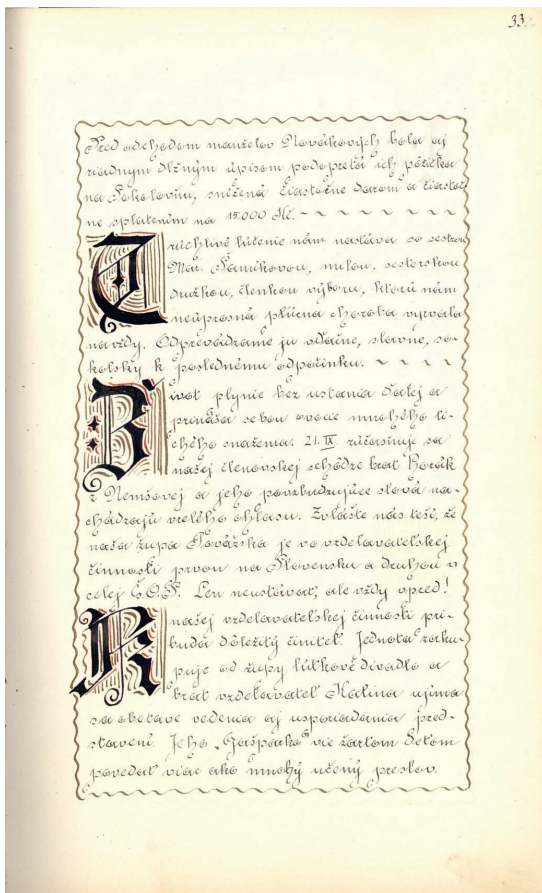 33.
Pred odchodom manželov Novákových bola aj
riadnym dlžným úpisom podopretá ich pôžička
na Sokolovňu, snížená čiastočne darom a čiastoč
ne splatením na 15.000 Kč. ~ ~ ~ ~ ~ ~ ~
Truchlivé lúčenie nám nastáva so sestrou
Mar. Šamíkovou, milou, sesterskou
družkou, členkou výboru, ktorú nám
neúprosná pľúcna choroba vyrvala
navždy. Odprevádzame ju vďačne, slavne, so-
kolsky k poslednému odpočinku. ~ ~ ~ ~
Život plynie bez ustania ďalej a
prináša sebou ovocie mnohého ti-
chého snaženia. 21. IX. zúčasňuje sa
našej členovskej schôdze brat Horák
z Nemšovej a jeho povzbudzujúce slová na-
chádzajú vrelého ohlasu. Zvlášte nás teší, že
naša župa Považská je vo vzdelavateľskej
činnosti prvou na Slovensku a druhou v
celej Č.O.S. Len neustávať, ale vždy vpred!
K našej vzdelavateľskej činnosti pri-
buda dôležitý činiteľ. Jednota zaku-
puje od župy lútkové divadlo a
brat vzdelavateľ Kalina ujíma
sa obetave vedenia aj usporiadania pred-
stavení. Jeho „Gašparko" vie žartom deťom
povedať viac ako mnohý učený preslov.